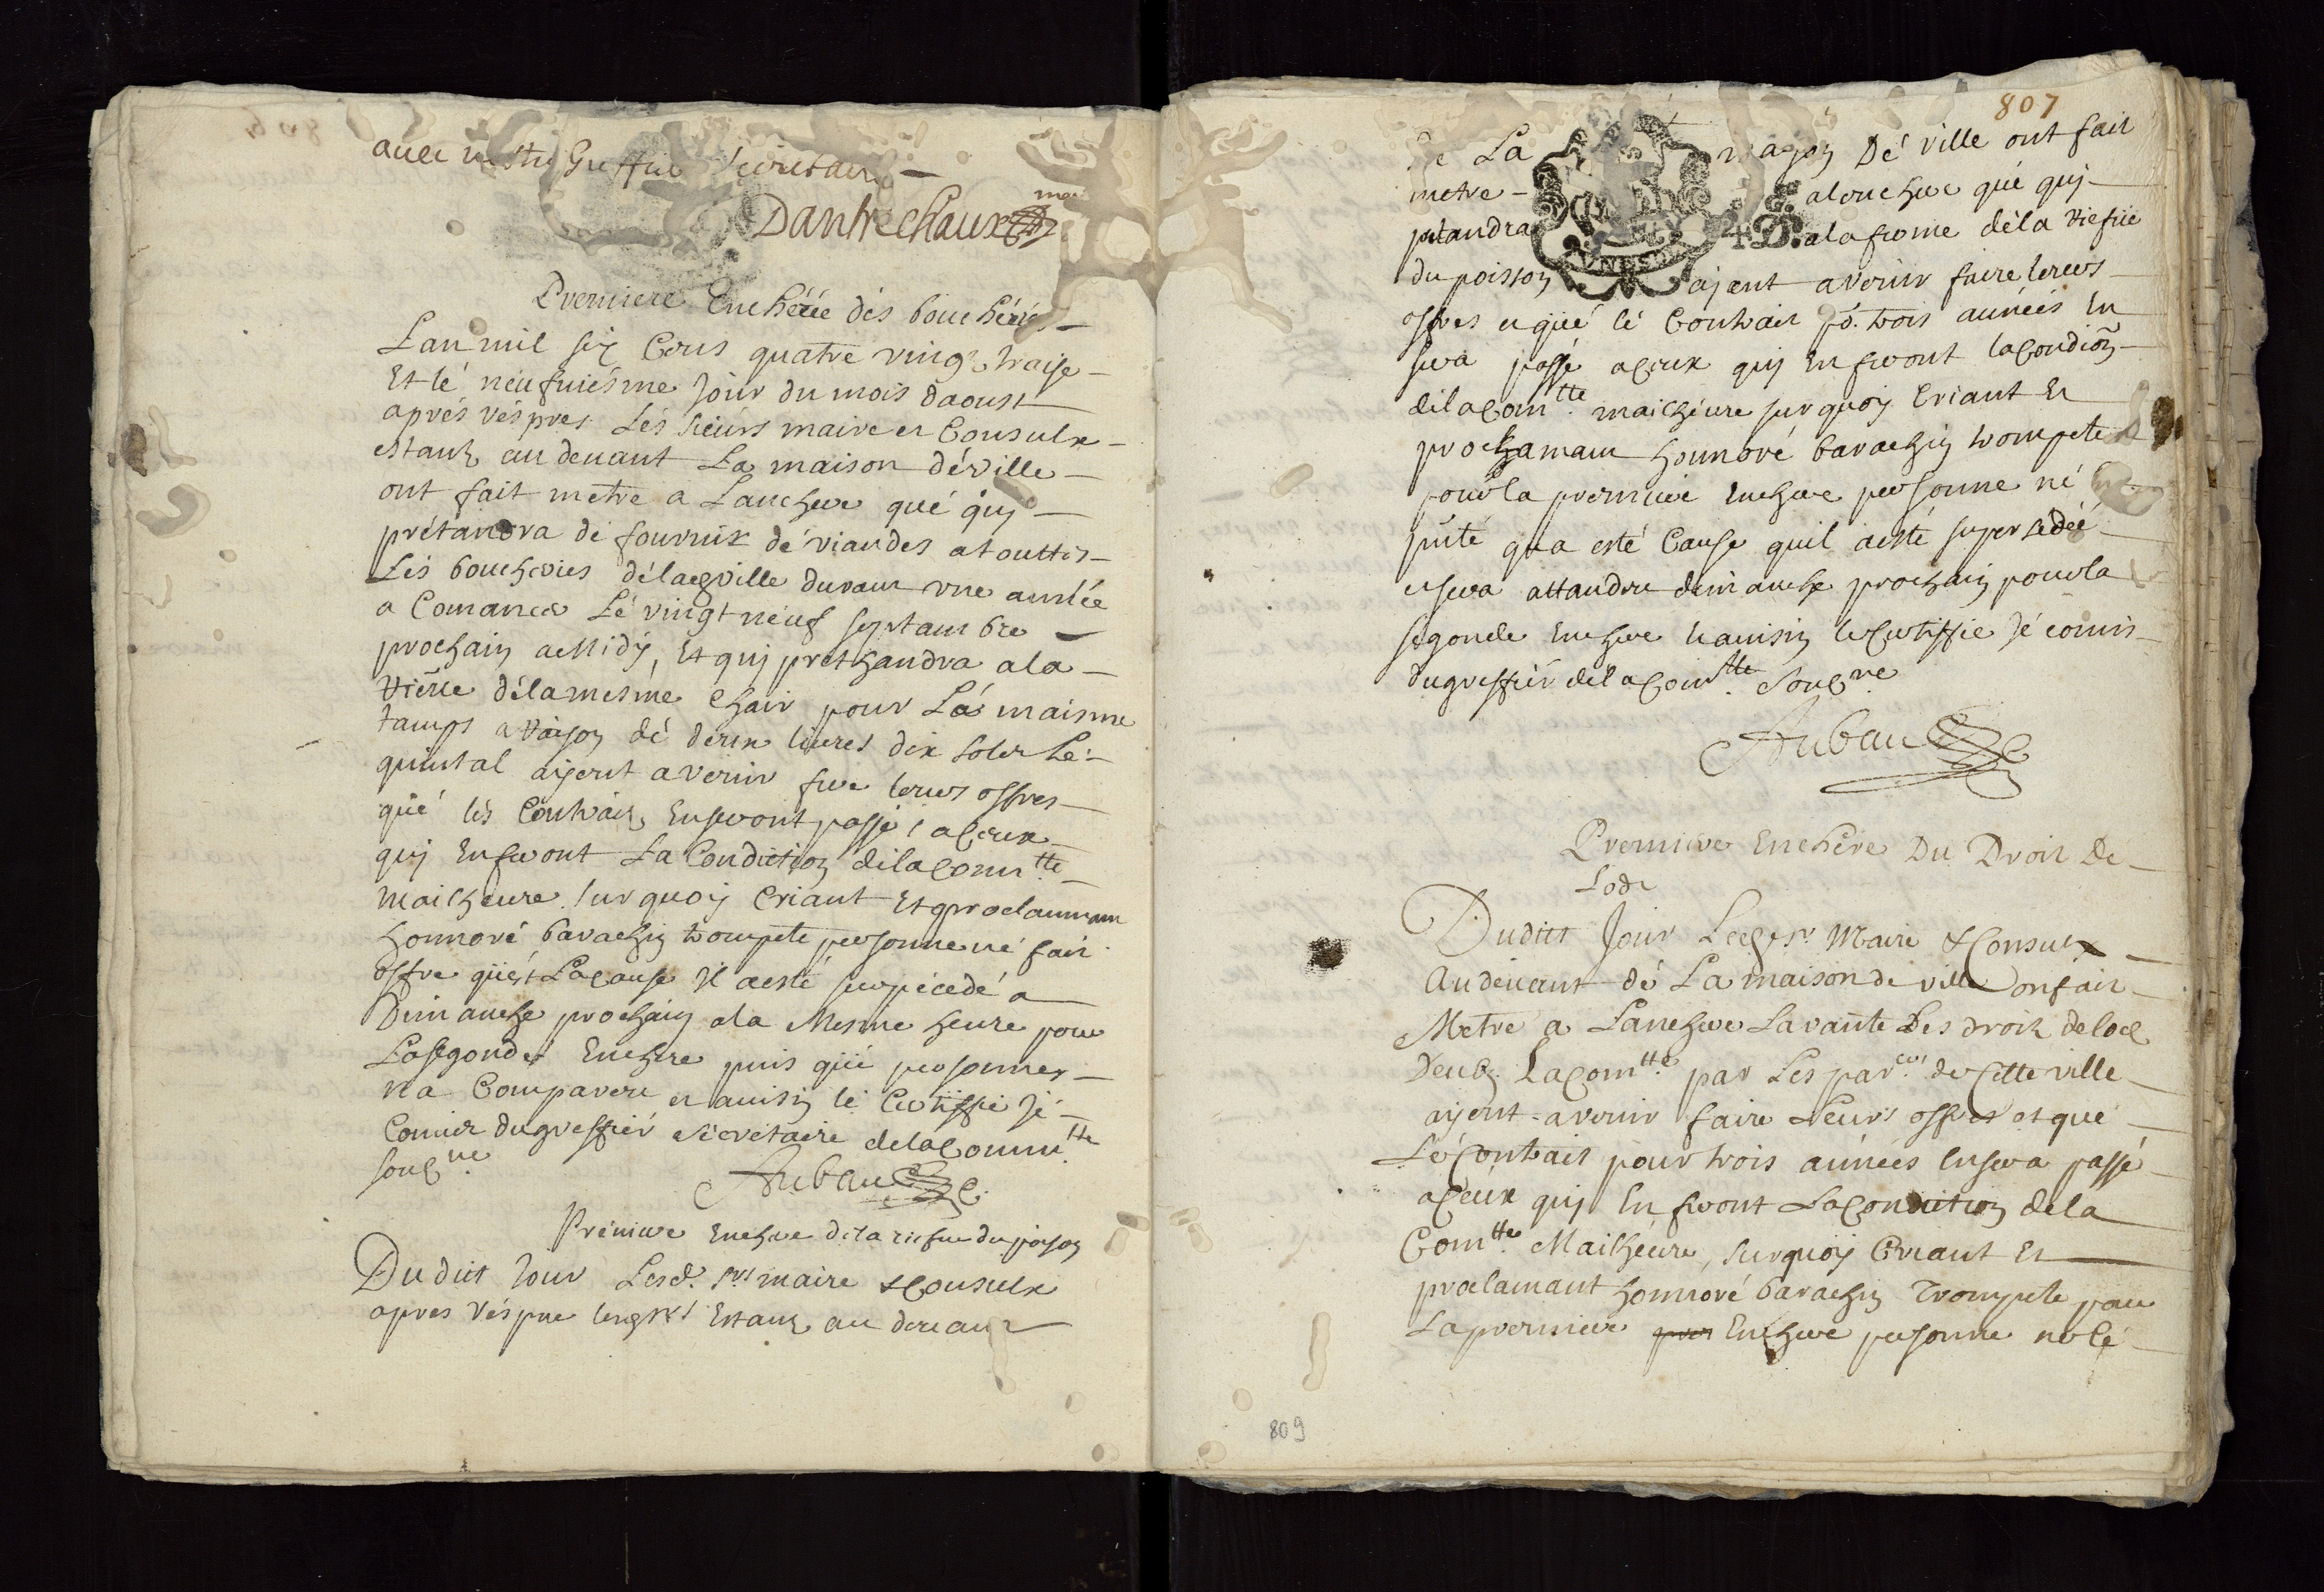 auec nostre Greffier secretaire
Dantrechaux maire
Premiere Encheré dés boucheries
Lan mil six Cens quatre vingt traise
Et lé neufuiesme Jour du mois daoust
aprés véspres Lés sieurs maire et Consuls
estant au deuant La maison déville
ont fait metre a Lanchere qué quy
prétandra dé fournir dé viandes a touttes
Lés boucheries délad ville durant vne année
a Comancer Lé vingt neuf septambre
prochain a Midy, Et quy prethandra a la
délamesme Chair pour Lé maisme
tamps a raison dé deux liures dix sols Lé
quintal ayent a venir fere leurs offres
qué lés Contrats En seront passé a Ceux
quy En feront La Condiction de la Comtté
mailheure sur quoy Criant Et proclammant
honnoré barachin trompete personne né fait
offre qu'est La Cause Il a esté supercédé a
Dimanche prochain a la Mesme heure pour
La segonde Enchere puis qué personne
na Comparere et ainsin lé Certiffie Jé
Comis du greffiér sécretaire de la Commtté
soubné
Aubau
Prémiere Enchere de la du poison
Dudict Jour Lesd. srs maire & Consuls
apres Véspre Estant au deuant
807
de La maison Dé ville ont fait
metre a lenchere qué quy
prétandra a la ferme déla
du poisson ayent a venir faire leurs
offres et qué lé Contrait po. trois années En
sera passé a Ceux quy En feront la Condion
de la Comtté mailheure sur quoy Criant Et
prochamant honnoré barachin trompete
pour la premiere Enchere personne né
qua esté Cause quil a esté supersédéé
et sera attandre dimanche prochain pour la
segonde Enchere & ainsin le Certiffie Jé comis
du greffier de la Comtté soubné
Aubau
Premiere Enchere Du Droit De
Lods
Dudict Jour Lesd srs Maire & Consuls
Au deuant dé La maison de ville on fait
Metre a Lanchere La vante Des droit de lods
Deub La Comtté par Les parers de Cette ville
ayent a venir faire Leurs offres et que
Lé Contrait pour trois années En sera passé
a Ceux quy En feront La Condiction de la
Comtté Mailheure, sur quoy Criant Et
proclamant honnoré barachin Trompete pour
La premiere Enchere personne
809